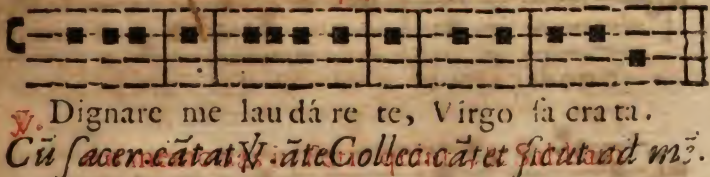 ℣. Dignare me laudá re te, Virgo ſa cra ta.
Cũ ſacer. cãtat ℣. ãte Collec. cãtet ſicut ad